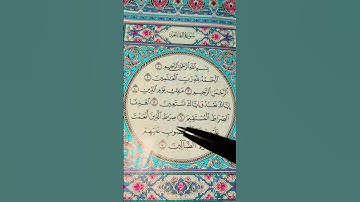 سُورَةُ الفَاتِحَةِ
بِسْمِ اللَّهِ الرَّحْمَٰنِ الرَّحِيمِ ۝
الْحَمْدُ لِلَّهِ رَبِّ الْعَٰلَمِينَ ۝
الرَّحْمَٰنِ الرَّحِيمِ ۝ مَٰلِكِ يَوْمِ الدِّينِ ۝
إِيَّاكَ نَعْبُدُ وَإِيَّاكَ نَسْتَعِينُ ۝ اهْدِنَا
الصِّرَٰطَ الْمُسْتَقِيمَ ۝ صِرَٰطَ الَّذِينَ أَنْعَمْتَ
عَلَيْهِمْ
الضَّالِّينَ ۝